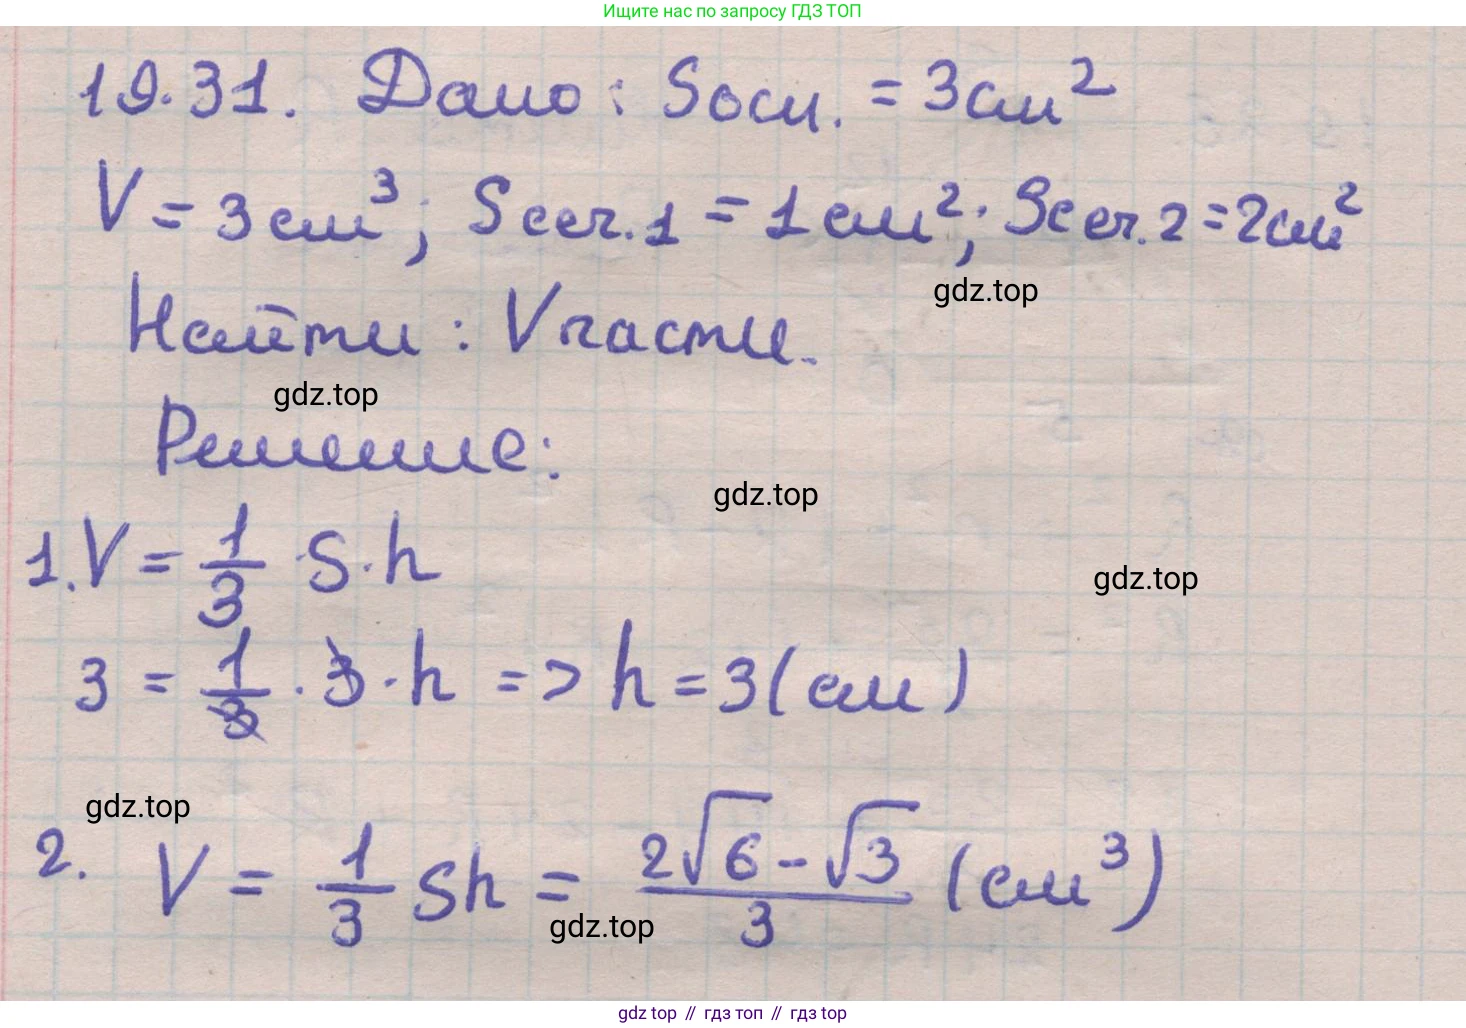 Ищите нас по запросу ГДЗ ТОП
19.31. Дано: Sосн. = 3см²
V = 3см³; Sсеч.1 = 1см²; Sсеч.2 = 2см²
gdz.top
Найти: Vчасти.
gdz.top
Решение:
gdz.top
1. V = 1/3 · S · h
gdz.top
3 = 1/3 · 3 · h => h = 3(см)
gdz.top
2. V = 1/3 Sh = (2√6 - √3)/3 (см³)
gdz.top
gdz top // гдз топ // гдз top